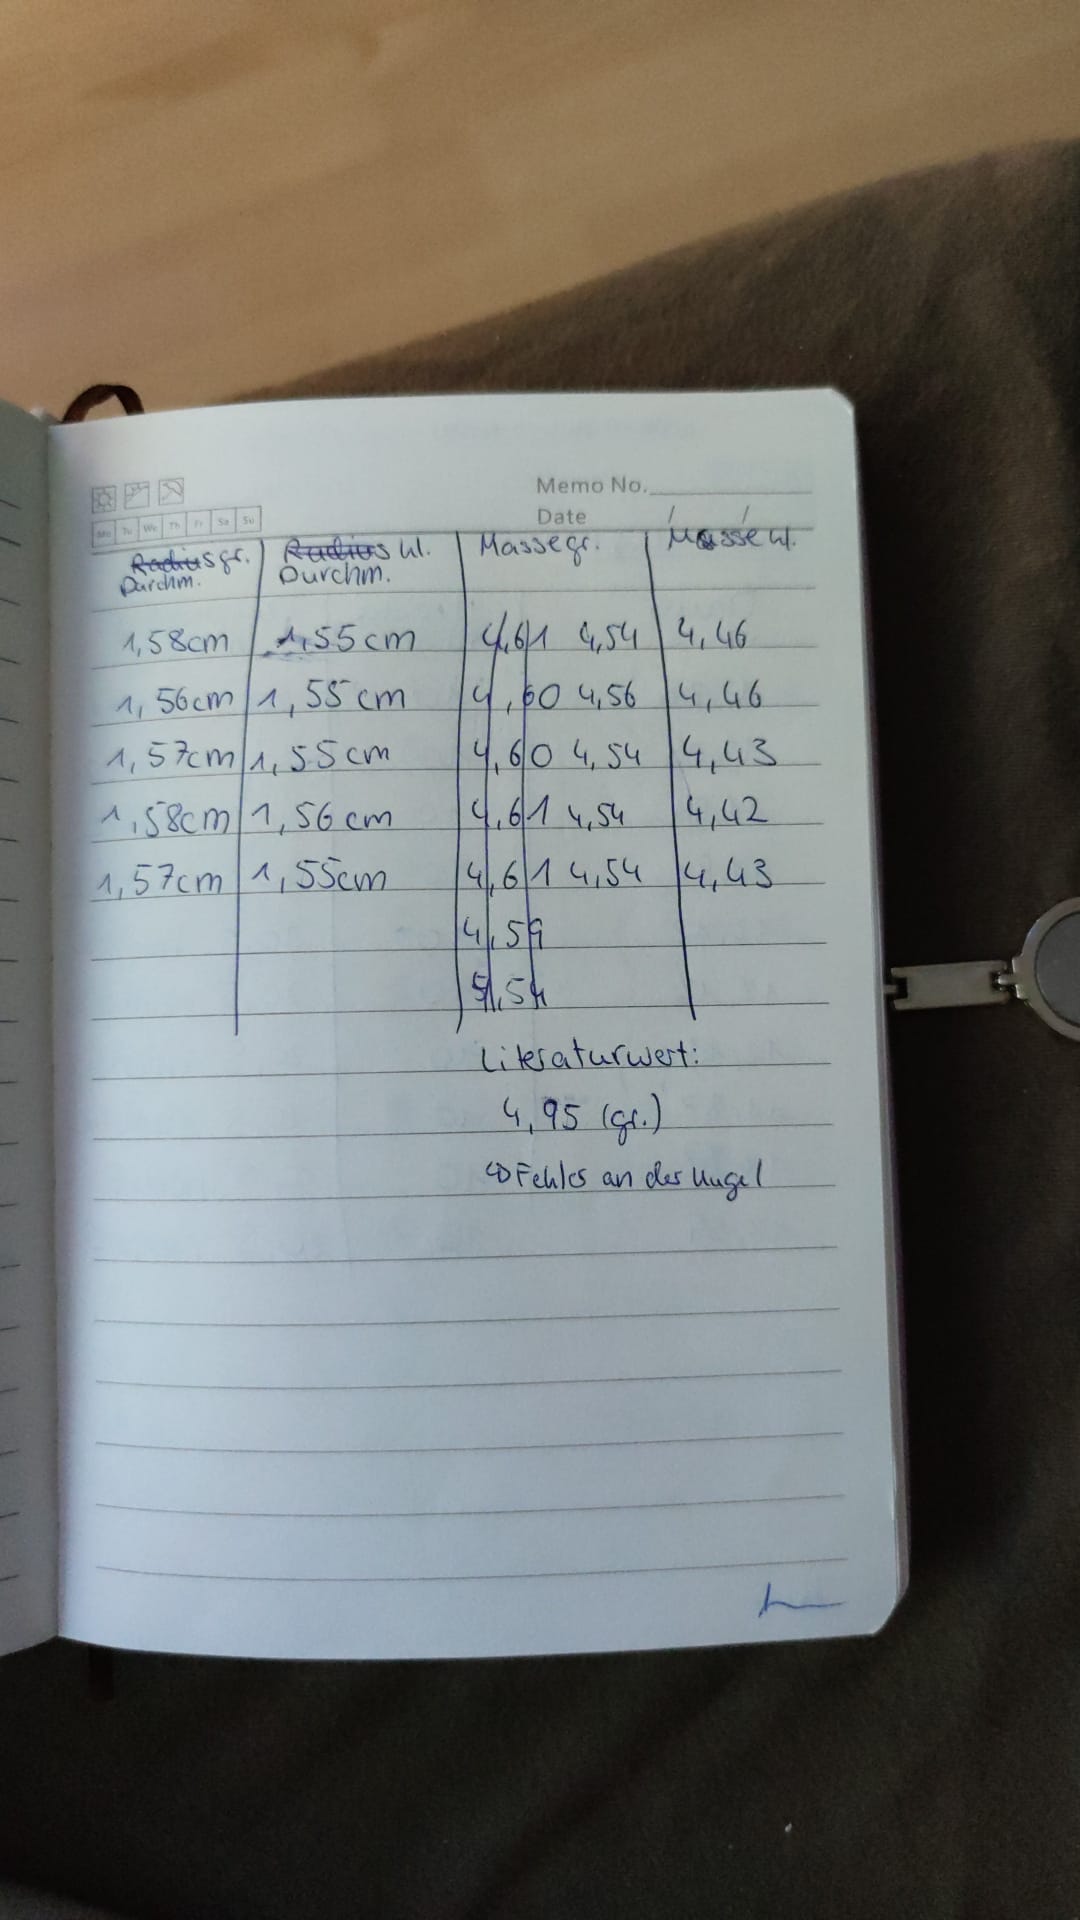 Memo No.
Mo Tu We Th Fr Sa Su
Date / /
Radius gr. Radius kl. Masse gr. Masse kl.
Durchm. Durchm.
1,58cm 1,55cm 4,61 4,54 4,46
1,56cm 1,55cm 4,60 4,56 4,46
1,57cm 1,55cm 4,60 4,54 4,43
1,58cm 1,56cm 4,61 4,54 4,42
1,57cm 1,55cm 4,61 4,54 4,43
4,59
4,54
Literaturwert:
4,95 (gr.)
↳ Fehler an der Kugel